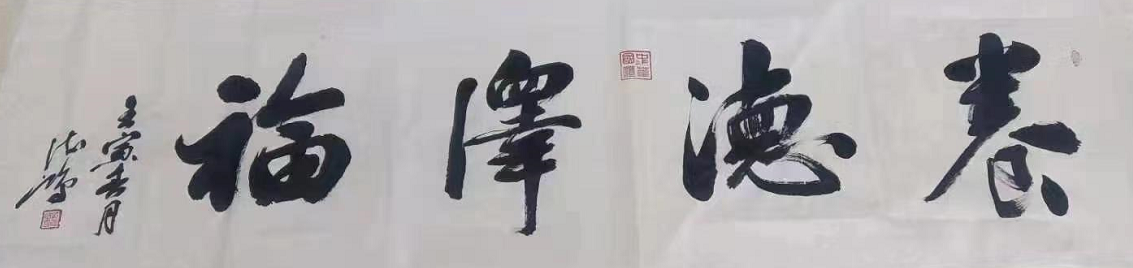 養德澤福
壬寅春月